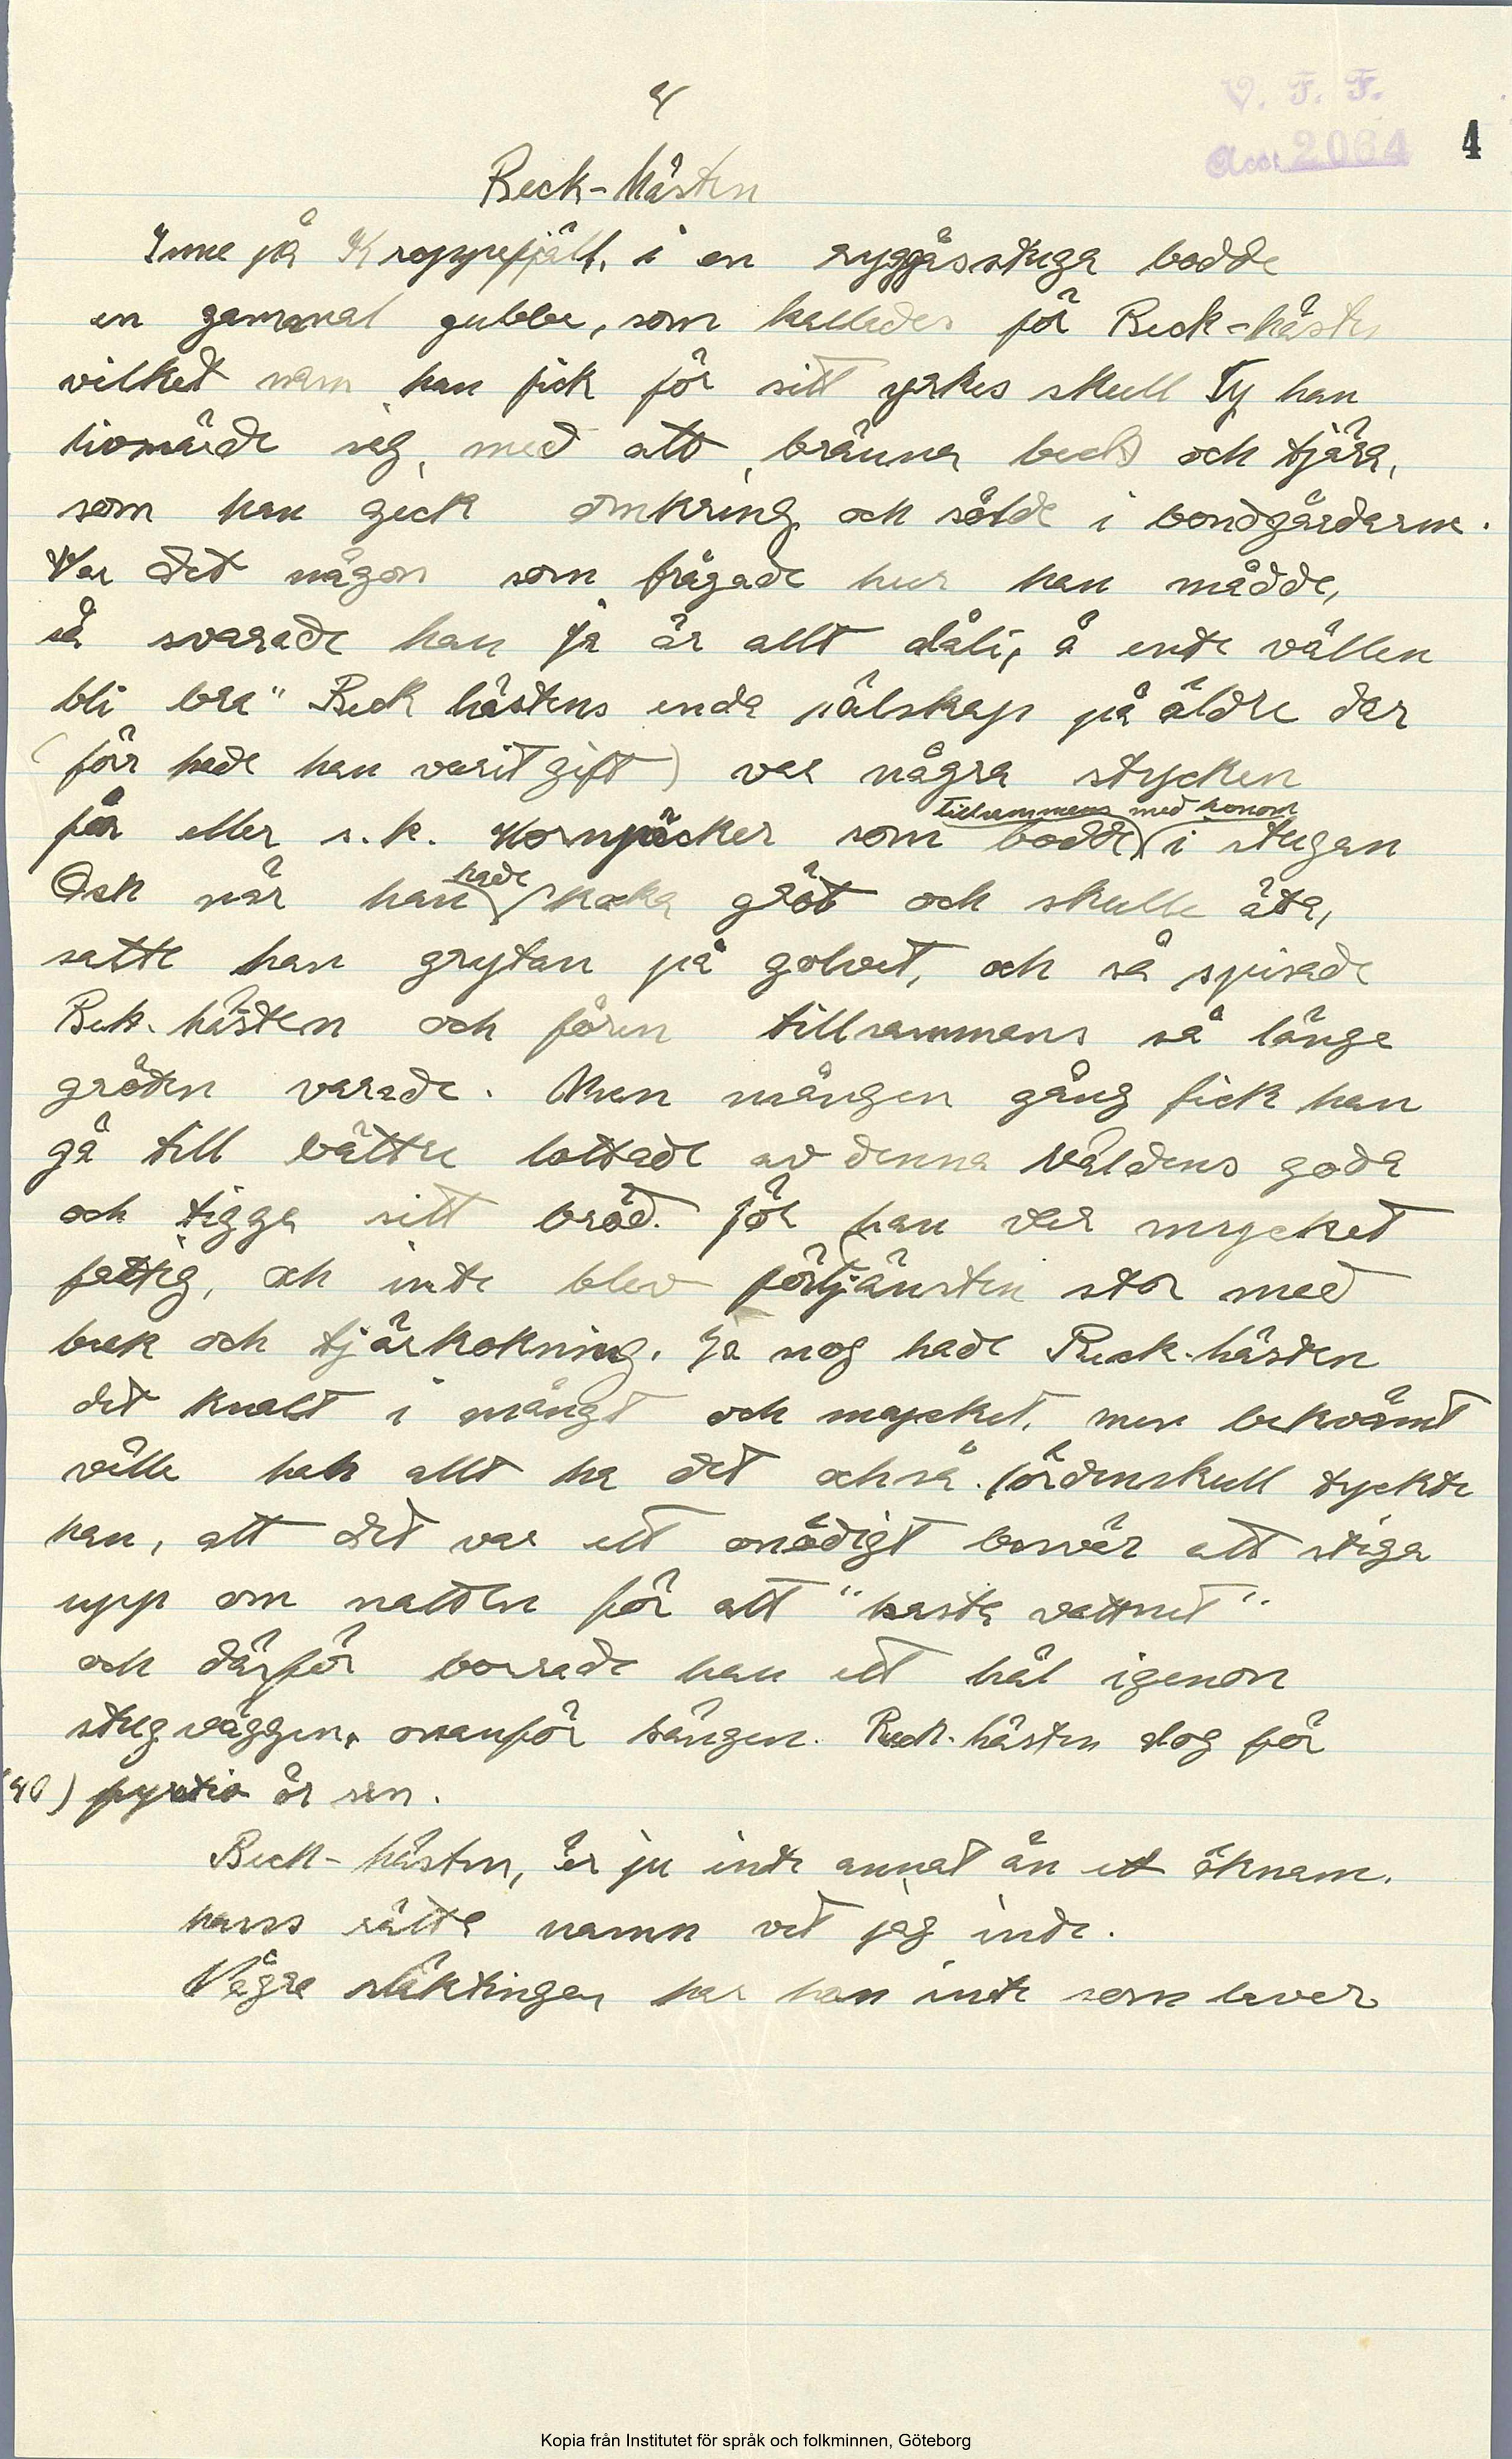 4
V. F. F.
Acc. 2064
4
Beck-Hästen
Inne på Kroppefjäll, i en ryggåsstuga bodde
en gammal gubbe, som kallades för Beck-hästen
vilket namn han fick för sitt yrkes skull Ty han
livnärde sig, med att bränna beck och tjära,
som han geck omkring och sålde i bondgårdarne.
Var det någon som frågade hur han mådde,
så svarade han ja är allt dåli, å ente vällen
bli bra" Beck hästens enda sälskap på äldre dar
(förr hade han varit gift) var några stycken
får eller s.k. Kornpäcker som bodde tillsammans med honom i stugan
Och när han hade koka gröt och skulle äta,
satte han grytan på golvet, och så spisade
Bek-hästen och fåren tillsammans så länge
gröten varade. Men mången gång fick han
gå till bättre lottade av denna väldens goda
och tigga sitt bröd. för han var mycket
fattig, och inte blev förtjänsten stor med
bek och tjärkokning. Ja nog hade Beck-hästen
det knalt i mångt och mycket, men bekvämt
ville han allt ha det ochså. fördenskull tyckte
han, att det var ett onödigt besvär att stiga
upp om natten för att "kasta vattnet"
och därför borrade han ett hål igenon
stugväggen, ovanför sängen. Beck-hästen dog för
(40) fyrtio år sen.
Beck-hästen, är ju inte annat än ett öknam.
hans rätta namn vet jag inte.
Några släktingar har han inte som lever
Kopia från Institutet för språk och folkminnen, Göteborg